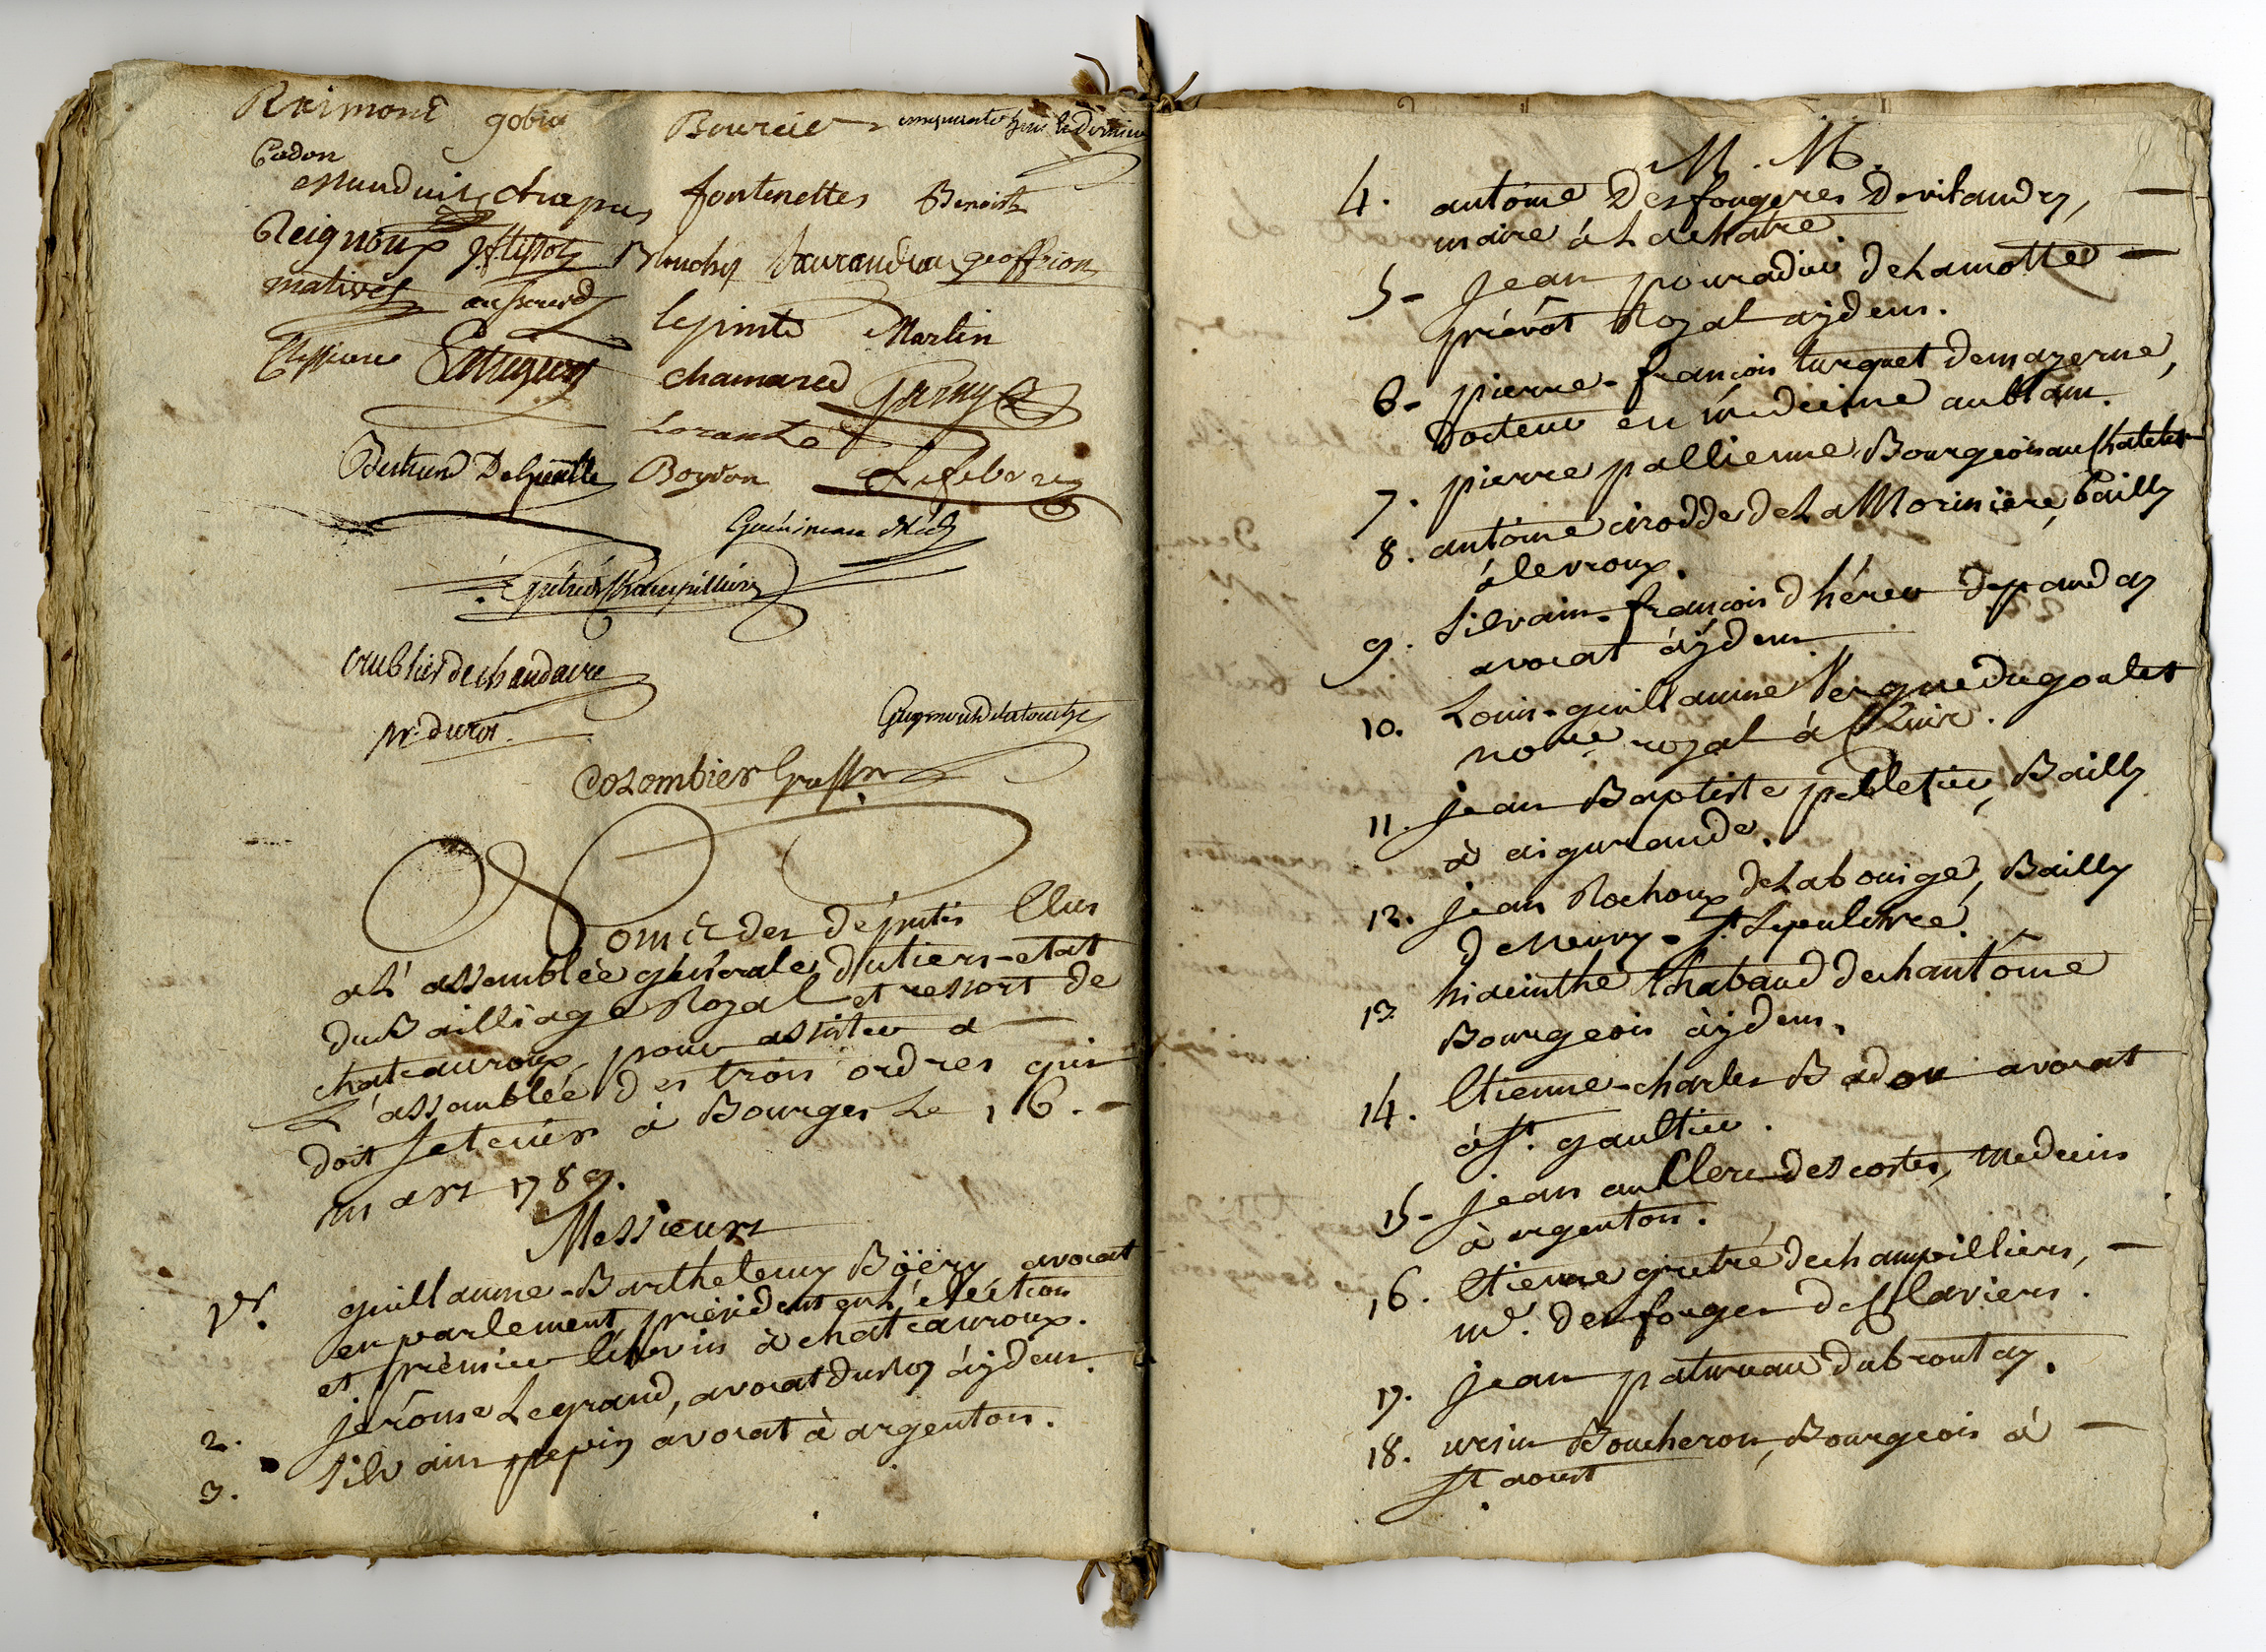 Raimont gobin Bourcier
Badon
chapus fontenettes Benoist
Reignoux Blanchy geoffrion
mativet
lepinte Martin
Tessiere chamared
Bertrand Delzeville Boyron Lefebvre
Guérineau
Grétré de Champillier
Crublier de chandaire
Guymond delatouche
Colombier
Noms des députés Elus
a L'assemblée générale, dutiers-etat
duBailliage Royal et ressort de
chateauroux, pour assister a —
L'assemblée des trois ordres qui
doit Setenir à Bourges Le 16. —
mars 1789.
Messieurs
1er. guillaume-Barthelemy Böéry avocat
en parlement, président en L'éléction
et prémier échevin à chateauroux.
2. jérôme Legrand, avocat duRoy áydem.
3. Silvain pepin avocat à argenton.
M. M.
4. antoine Desfougeres Devilandry, —
maire à Lachatre.
5- Jean pouradier deLamotte —
prévôt Royal aÿdem.
6- pierre-françois turquet demayerne,
Docteur en médecine aublanc.
7. pierre pallienne Bourgeois auchatelet
8. antoine cirodde deLaMoriniere, Bailly
à levroux.
9. Silvain-françois d'héreu depanday
avocat aÿdem
10. Louis-guillaume Vergnedugoulet
nore. royal à Cluis.
11. jean Baptiste pelletier, Bailly
à aigurande.
12. jean Rochoux deLabouige, Bailly
deNeuvy-St. Sepulchre.
13. hiacinthe thabaud dechantôme
Bourgeois àÿdem.
14. Etienne-charles Badou avocat
à St. gaultier.
15- jean auClerc descottes, Médecin
à argenton.
16. Etienne grétré dechampilliers, —
md. des forges de Claviers.
17. jean patureau dubroutay.
18. ursin Boucheron, Bourgeois à —
St aoust